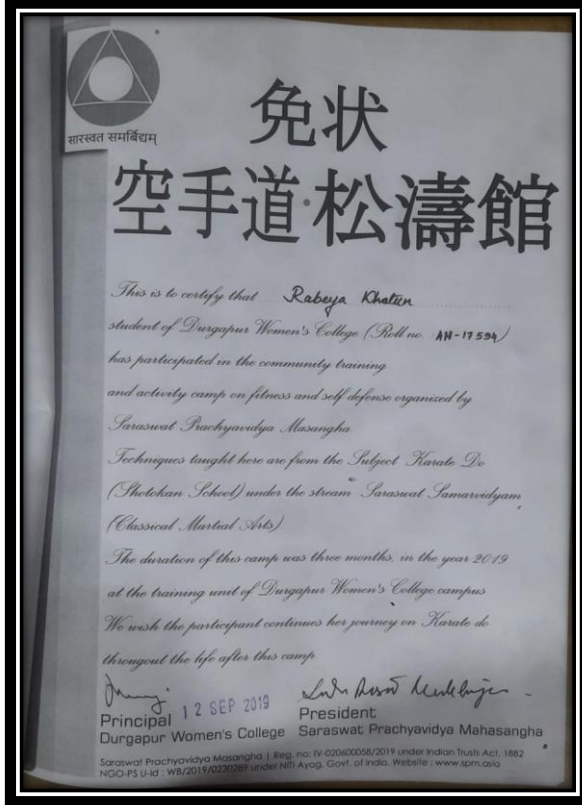 सारस्वत समर्बिद्यम्
免状
空手道・松濤館
This is to certify that Rabeya Khatun
student of Durgapur Women's College (Roll no. AH-17594)
has participated in the community training
and activity camp on fitness and self defense organized by
Saraswat Prachyavidya Masangha
Techniques taught here are from the Subject Karate Do
(Shotokan School) under the stream Saraswat Samarvidyam
(Classical Martial Arts)
The duration of this camp was three months, in the year 2019
at the training unit of Durgapur Women's College campus
We wish the participant continues her journey on Karate do
througout the life after this camp.
12 SEP 2019
Principal President
Durgapur Women's College Saraswat Prachyavidya Mahasangha
Saraswat Prachyavidya Masangha | Reg. no: IV-020600058/2019 under Indian Trusts Act, 1882
NGO-PS U-Id : WB/2019/0230269 under NITI Ayog, Govt. of India. Website : www.spm.asia